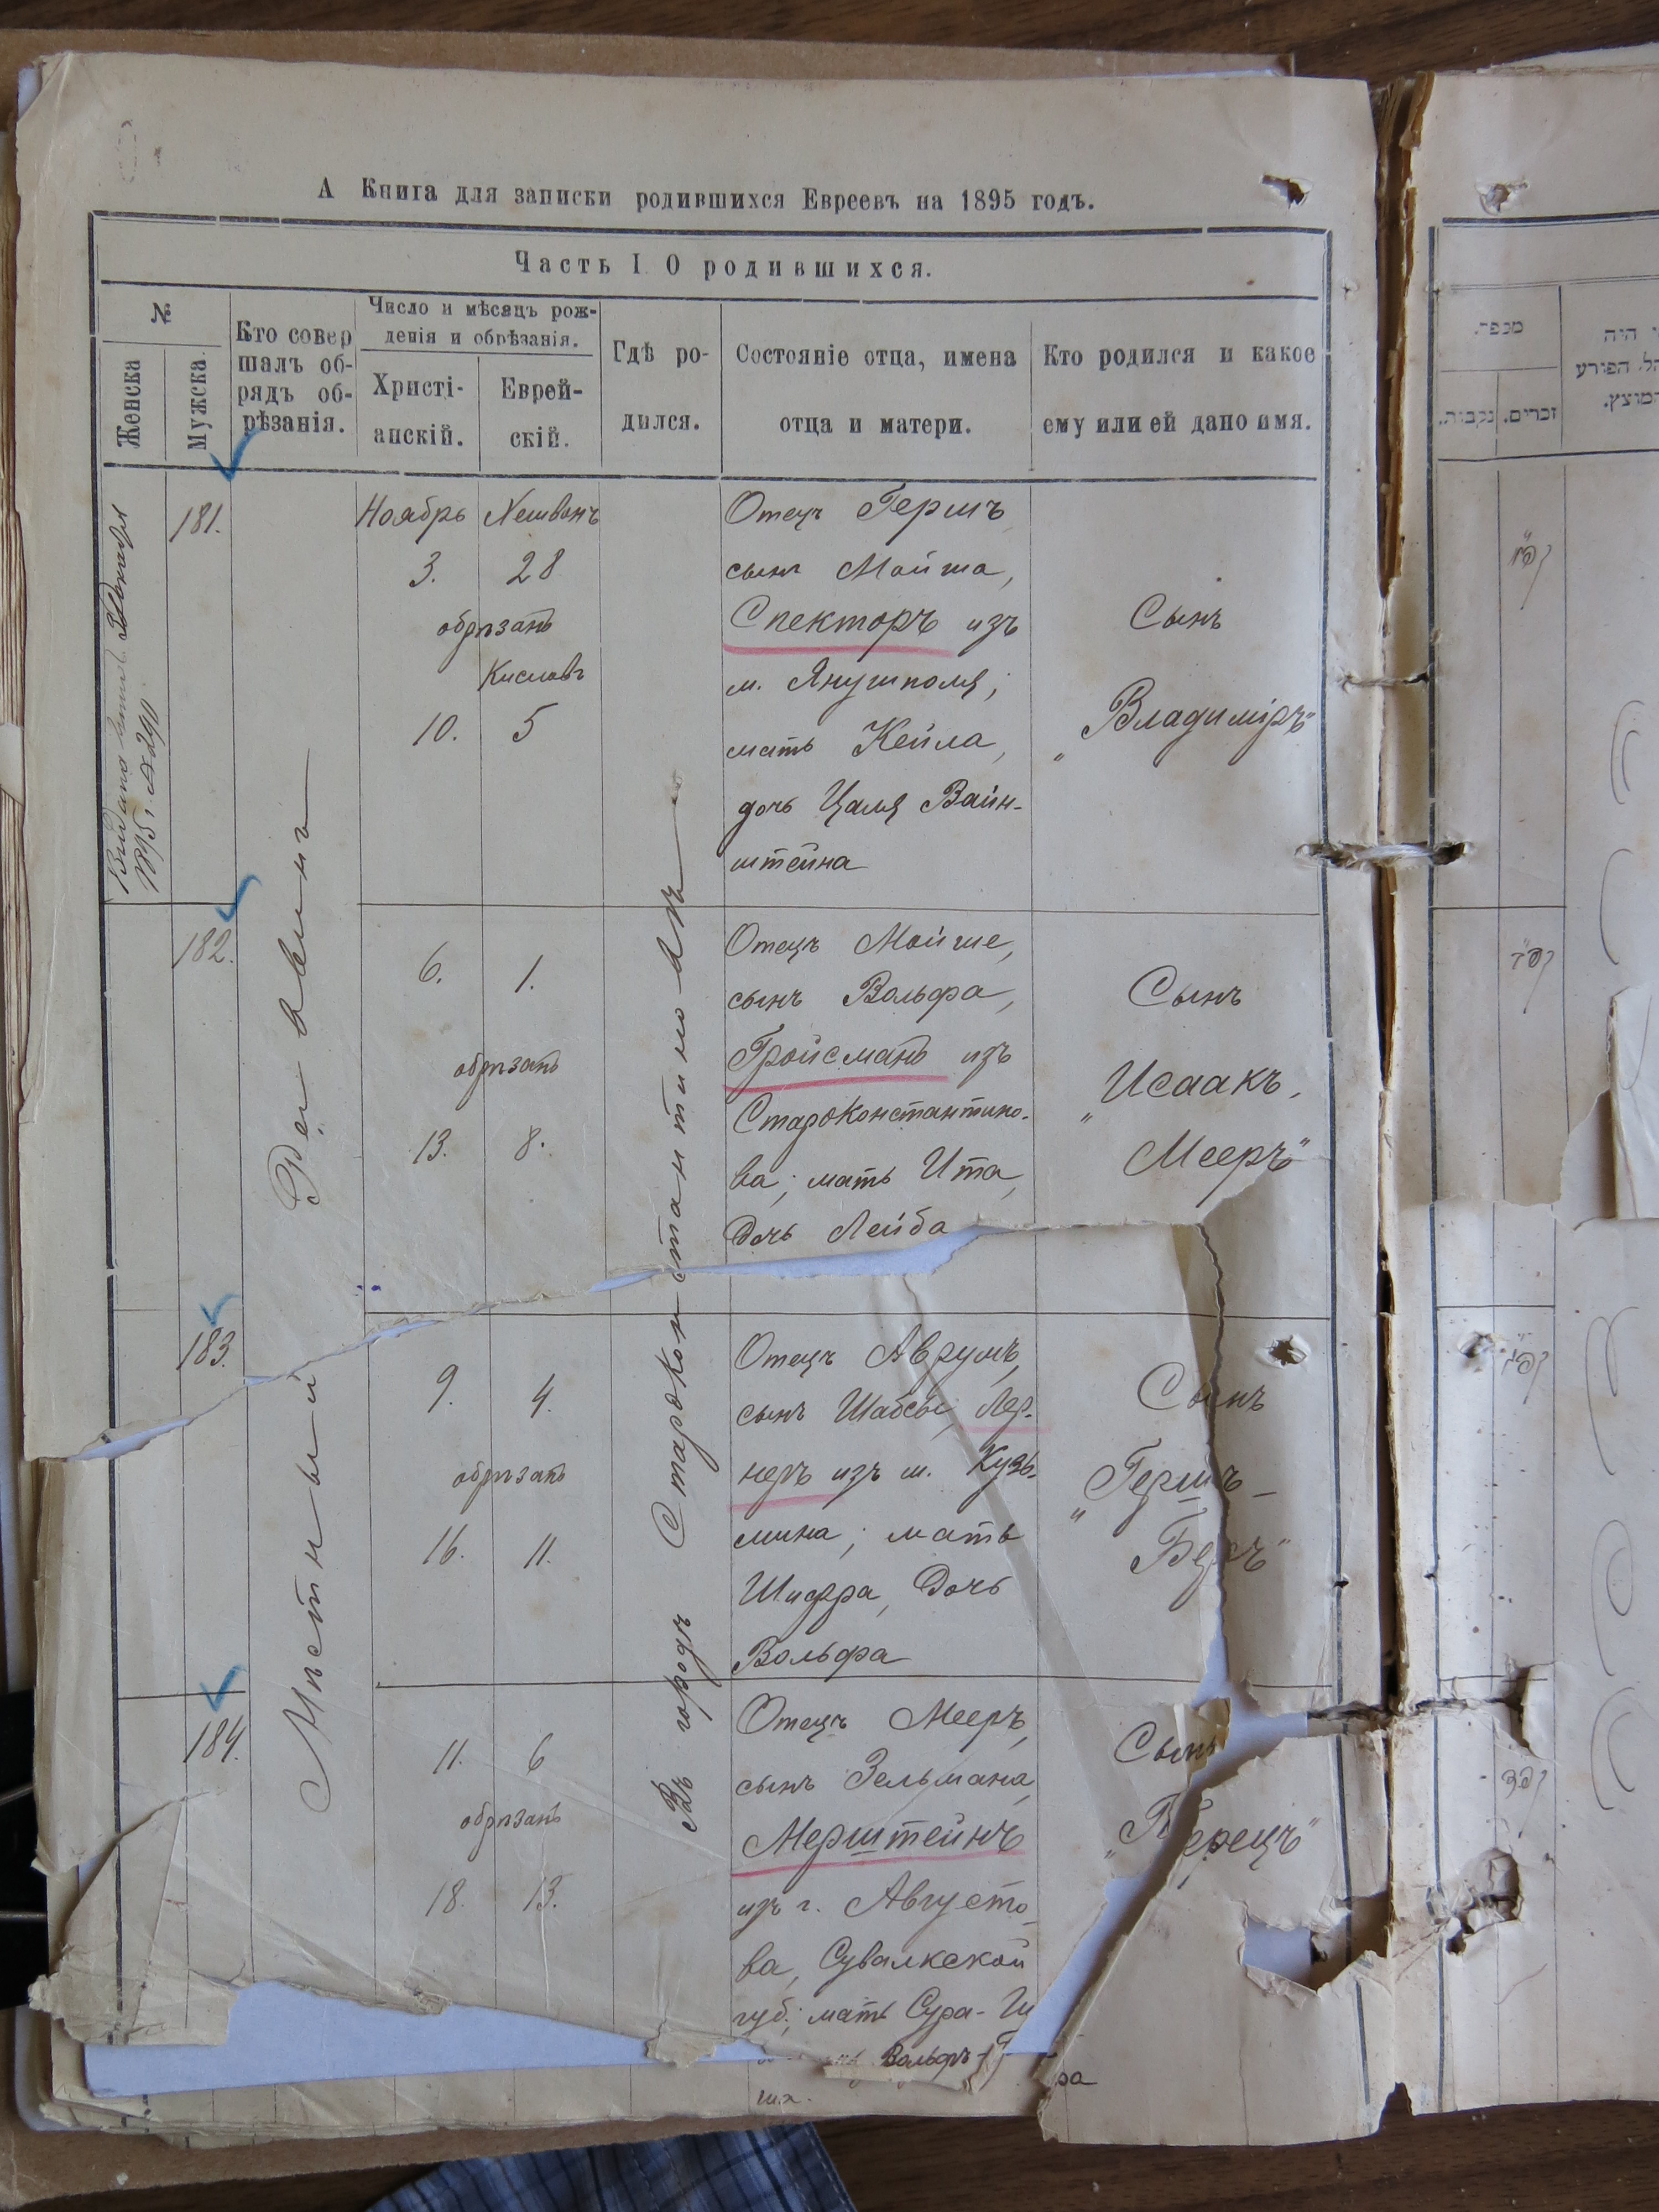 А Книга для записки родившихся Евреевъ на 1895 годъ.
Часть I О родившихся.
№
Женска
Мужска
Кто совер
шалъ об-
рядъ об-
рѣзанія.
Число и мѣсяцъ рож-
денія и обрѣзанія.
Христі-
анскій.
Еврей-
скій.
Гдѣ ро-
дился.
Состояніе отца, имена
отца и матери.
Кто родился и какое
ему или ей дано имя.
1895 г. № 290
Мѣстный
Раввинъ
Въ городѣ Староконстантиновѣ
181.
Ноябрь Хешванъ
3. 28
обрѣзанъ
Кислевъ
10. 5
Отецъ Гершъ
сынъ Мойша,
Спекторъ изъ
м. Янушполя;
мать Кейла,
дочь Цаля Вайн-
штейна
Сынъ
„Владиміръ"
182.
6. 1.
обрѣзанъ
13. 8.
Отецъ Мойше,
сынъ Вольфа,
Гройсманъ изъ
Староконстантино-
ва; мать Ита,
дочь Лейба
Сынъ
„Исаакъ-
Мееръ"
183.
9. 4.
обрѣзанъ
16. 11.
Отецъ Аврумъ,
сынъ Шабсы, Лер-
неръ изъ м. Кузь-
мина; мать
Шифра, дочь
Вольфа
Сынъ
„Гершъ-
Беръ"
184.
11. 6
обрѣзанъ
18. 13.
Отецъ Мееръ,
сынъ Зельмана,
Мерштейнъ
изъ г. Августо-
ва, Сувалкской
губ.; мать Сура-
Вольфъ-
Сынъ
„Перецъ"
מספר.
זכרים.
נקבות.